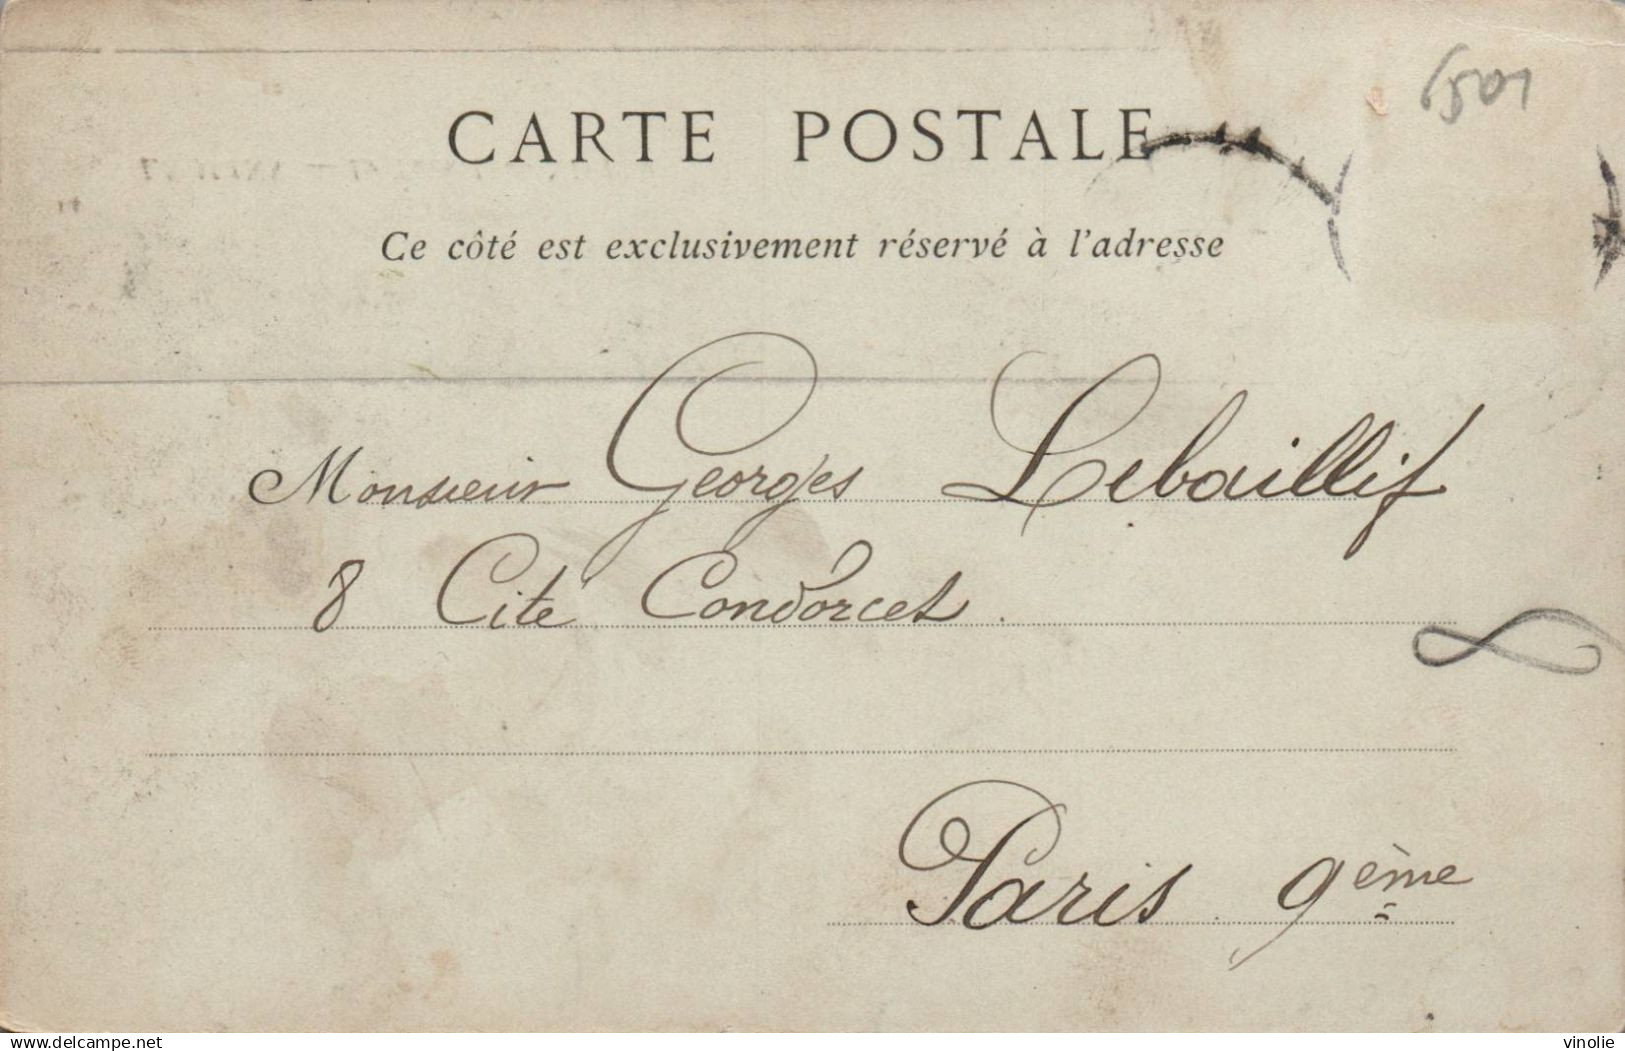 6501
CARTE POSTALE
Ce côté est exclusivement réservé à l'adresse
Monsieur Georges Lebaillif
8 Cité Condorcet.
Paris 9ème
www.delcampe.net
vinolie